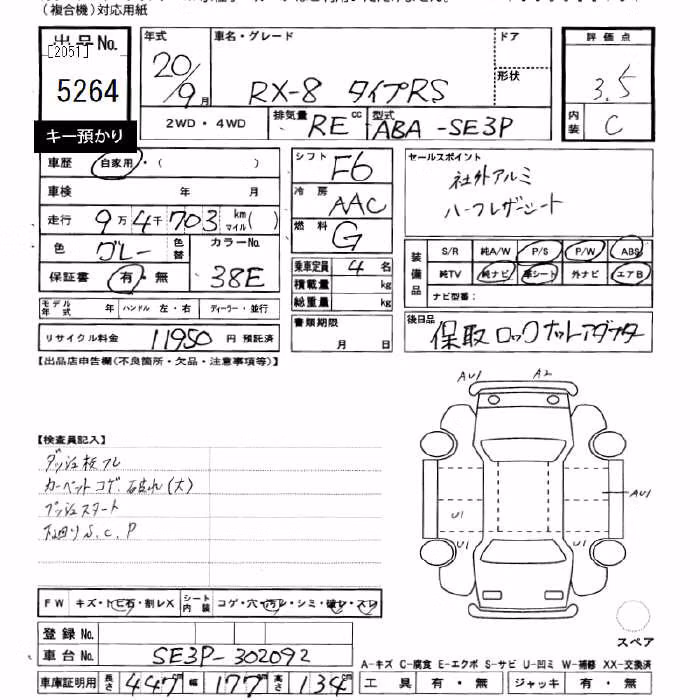 (複合機)対応用紙
出品No. 年式 車名・グレード ドア 評価点
[2051] 20/9月 RX-8 タイプRS 形状 3.5
5264 2WD・4WD 排気量 RE cc 型式 ABA-SE3P 内装 C
キー預かり
車歴 自家用・( ) シフト F6 セールスポイント
車検 年 月 冷房 AAC 社外アルミ
走行 9万4千703 km マイル( ) 燃料 G ハーフレザーシート
色 グレー 色替 カラーNo. 38E
保証書 有・無
乗車定員 4名 装備品 S/R 純A/W P/S P/W ABS
積載量 kg 純TV 純ナビ 革シート 外ナビ エアB
総重量 kg ナビ型番:
モデル年式 年 ハンドル 左・右 ディーラー・並行
書類期限 月 日 後日品 保取 ロックナットアダプタ
リサイクル料金 11950 円 預託済
【出品店申告欄(不良箇所・欠品・注意事項等)】
AU1 A2
【検査員記入】
ダッシュ板フレ
カーペットコゲ. 破れ(大)
プッシュスタート
下回りS.C.P
AU1
U1
U1 U1
FW キズ・トビ石・割レX シート内装 コゲ・穴・汚レ・シミ・破レ・スレ
登録No.
スペア
車台No. SE3P-302092
A-キズ C-腐食 E-エクボ S-サビ U-凹ミ W-補修 XX-交換済
車庫証明用 長さ 447cm 幅 177cm 高さ 134cm 工具 有・無 ジャッキ 有・無